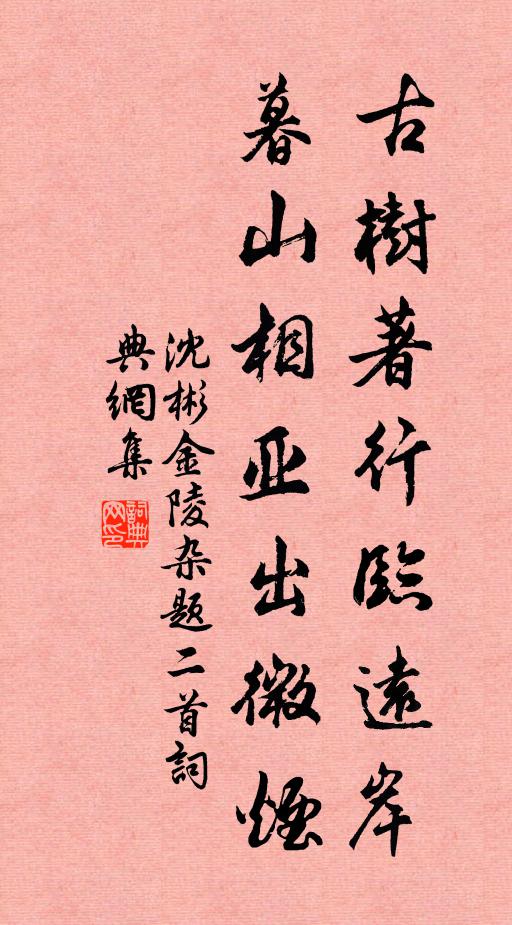 古樹著行臨遠岸
暮山相亚出微煙
沈彬金陵杂题二首詞
典網集
詞典
网印